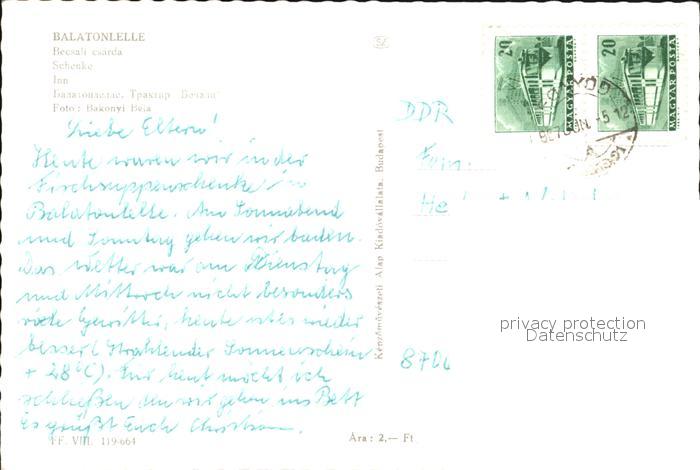 BALATONLELLE
Becsali csárda
Schenke
Inn
Foto: Bakonyi Béla
Liebe Eltern!
Heute waren wir in der
Fischsuppenschenke in
Balatonlelle. Am Sonnabend
und Sonntag gehen wir baden.
Das Wetter war am Dienstag
und Mittwoch nicht besonders
viele Gewitter, heute ist es wieder
besser (Strahlender Sonnenschein
+ 28°C). Für heut möcht ich
schließen denn wir gehen ins Bett
Es grüßt Euch Christian.
FF. VIII. 119-664
Ára: 2,— Ft
Képzőművészeti Alap Kiadóvállalata, Budapest
DDR
Fam.
He
870
20
MAGYAR POSTA
20
MAGYAR POSTA
privacy protection
Datenschutz